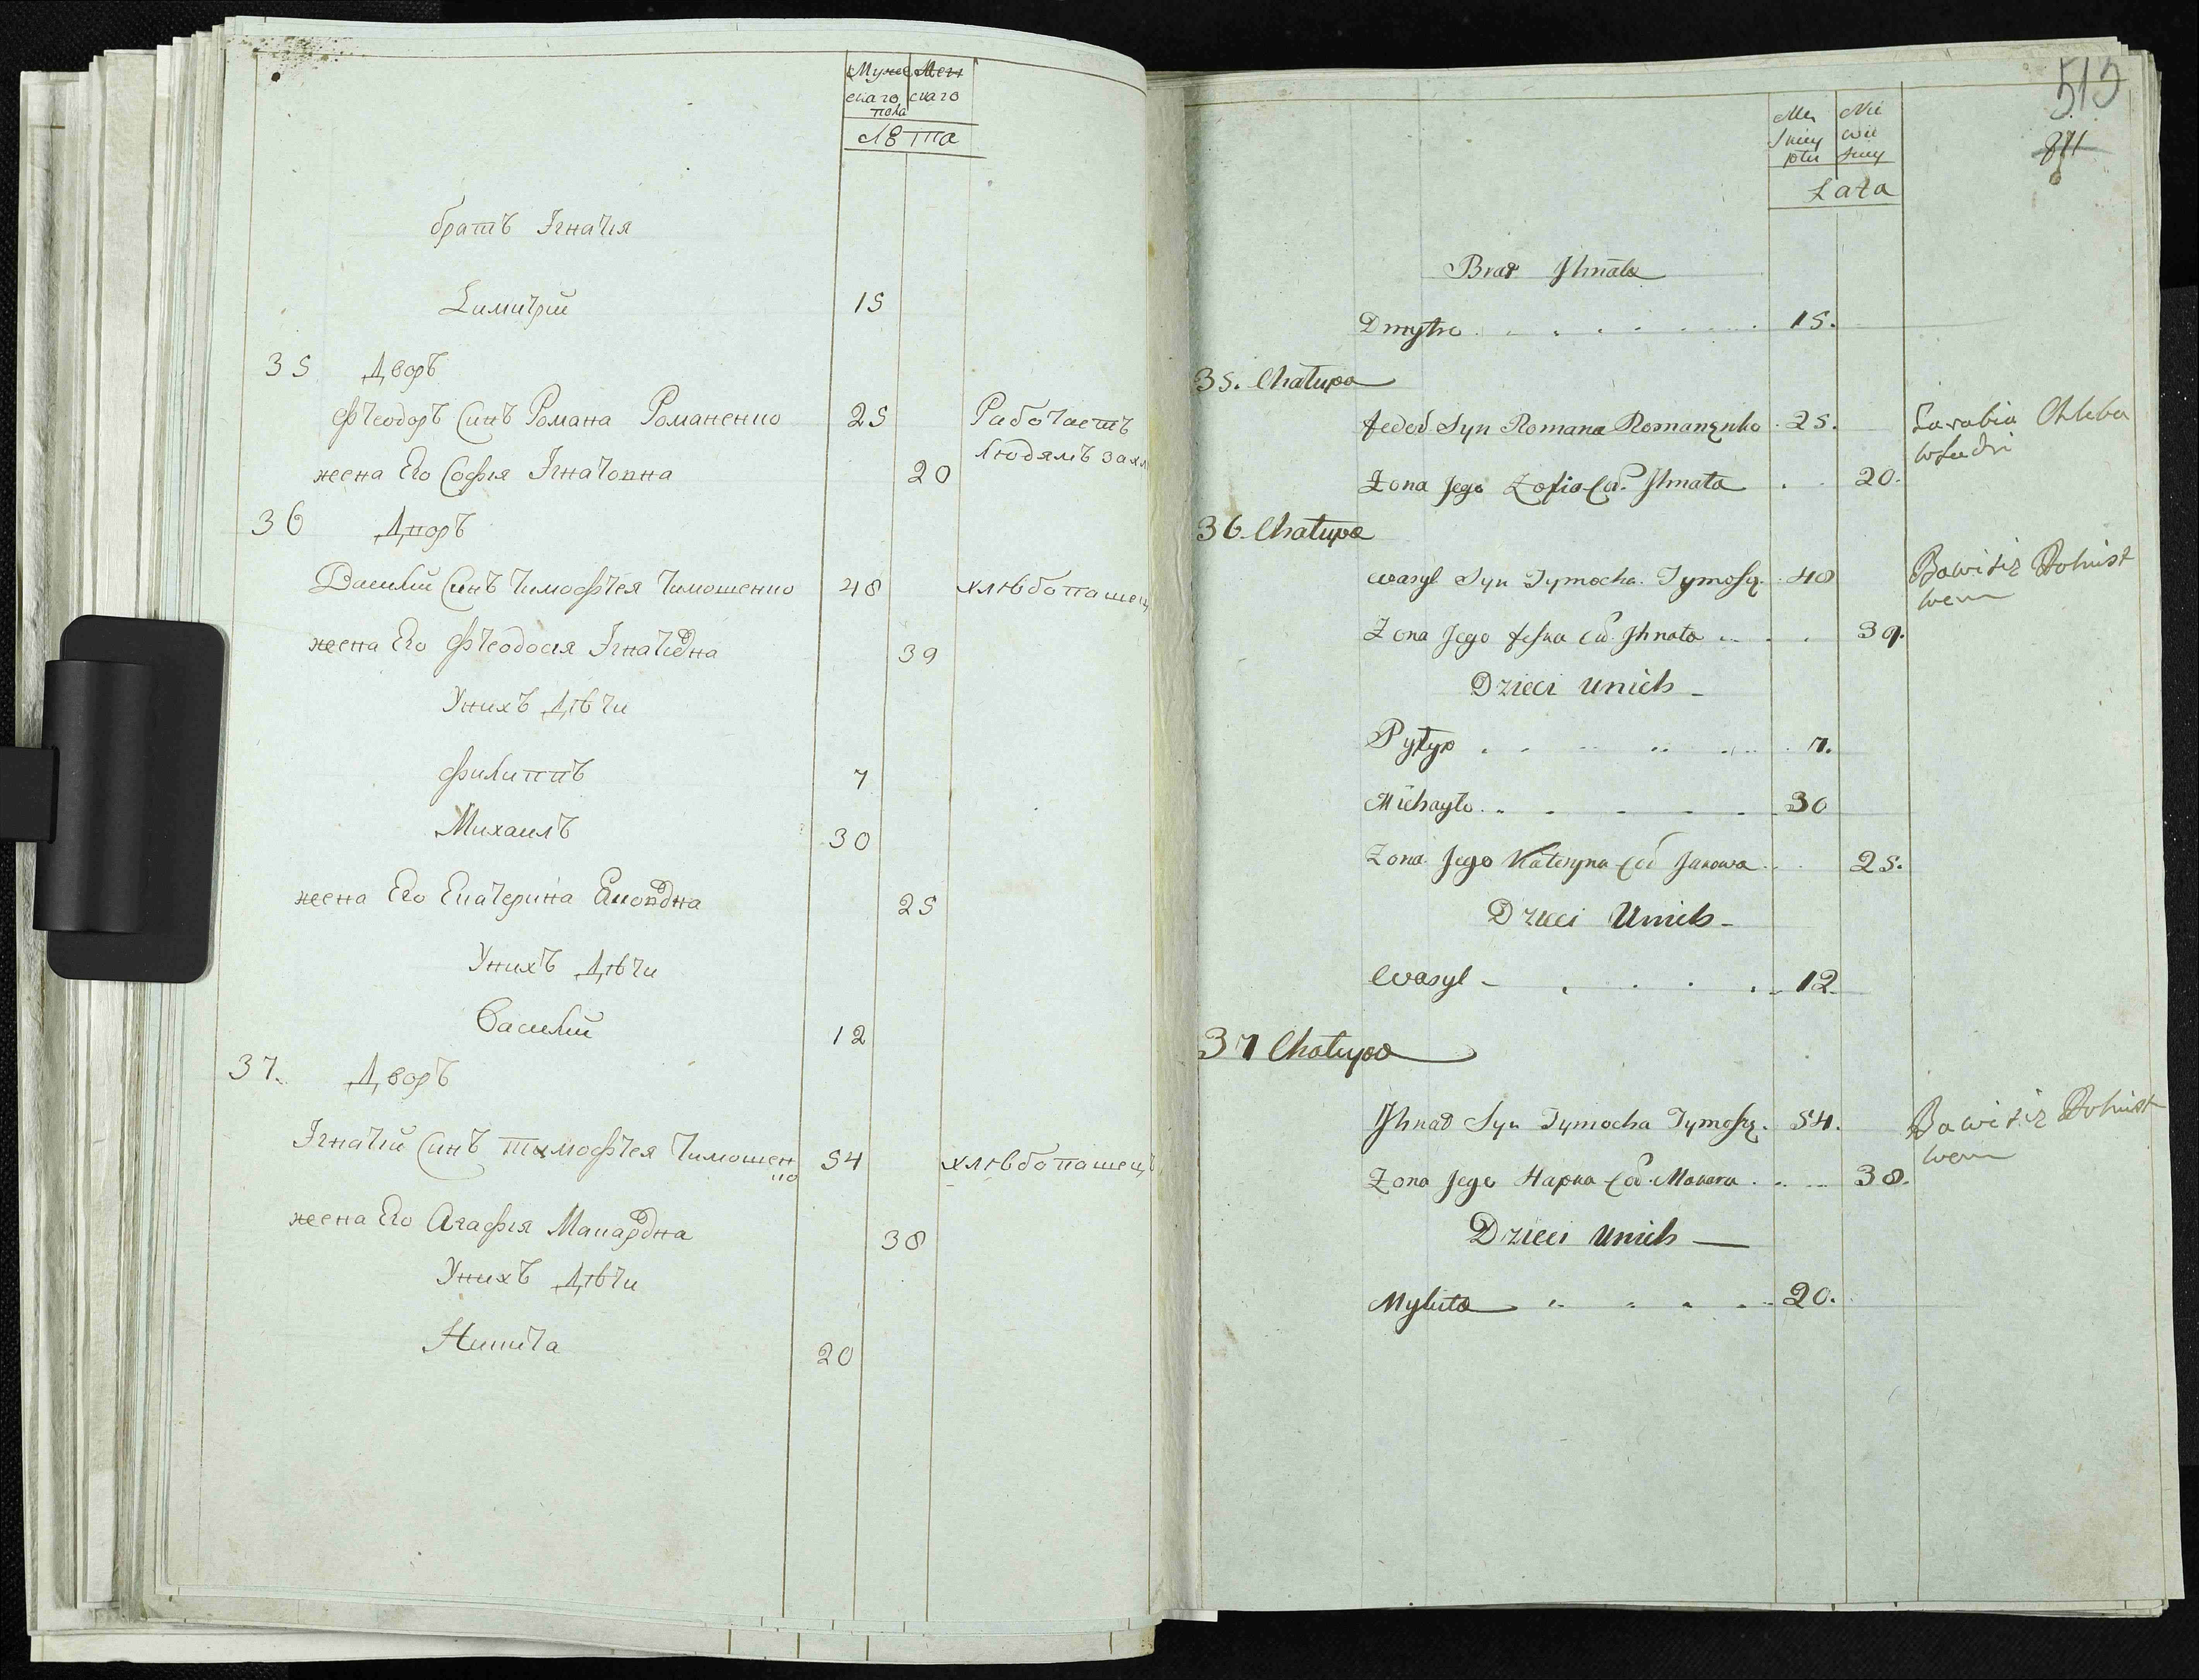 Муже Жен
скаго скаго
пола
лѣта
братъ Игнатія
Димитрій 15
35 Дворъ
Ѳеодоръ Синъ Романа Романенко 25 Работаетъ
жена Его Софія Игнатовна 20 Людямъ за хл
36 Дворъ
Василій Синъ Тимофтея Тимошенко 48 хлѣбопашец
жена Его Фтеодосія Игнатовна 39
Унихъ Дѣти
Филиппъ 7
Михаилъ 30
жена Его Екатерина Якововна 25
Унихъ Дѣти
Василій 12
37. Дворъ
Игнатій Синъ тимофтея Тимошен 54 хлѣбопашецъ
ко
жена Его Агафія Макаровна 38
Унихъ Дѣти
Никита 20
513
Mę Nie
skiey wie
płci skiey
Lata
Brat Ihnata
Dmytro 15.
35. Chałupa
Fedor Syn Romana Romanęnko 25. Zarabia Chleba
Żona Jego Zofia Cór. Ihnata 20. w ludzi
36. Chałupa
Wasyl Syn Tymocha Tymoszę. 48 Bawi się Rolnict
wem
Żona Jego Feska Có. Ihnata 39.
Dzieci unich
Pyłyp 7.
Michayło 30
Żona Jego Kateryna Cór Jakowa 25.
Dzieci Unich
Wasyl 12
37 Chałupa
Ihnat Syn Tymocha Tymoszę. 54. Bawi się Rolnict
wem
Żona Jego Hapka Cór. Makara 38.
Dzieci unich
Mykita 20.